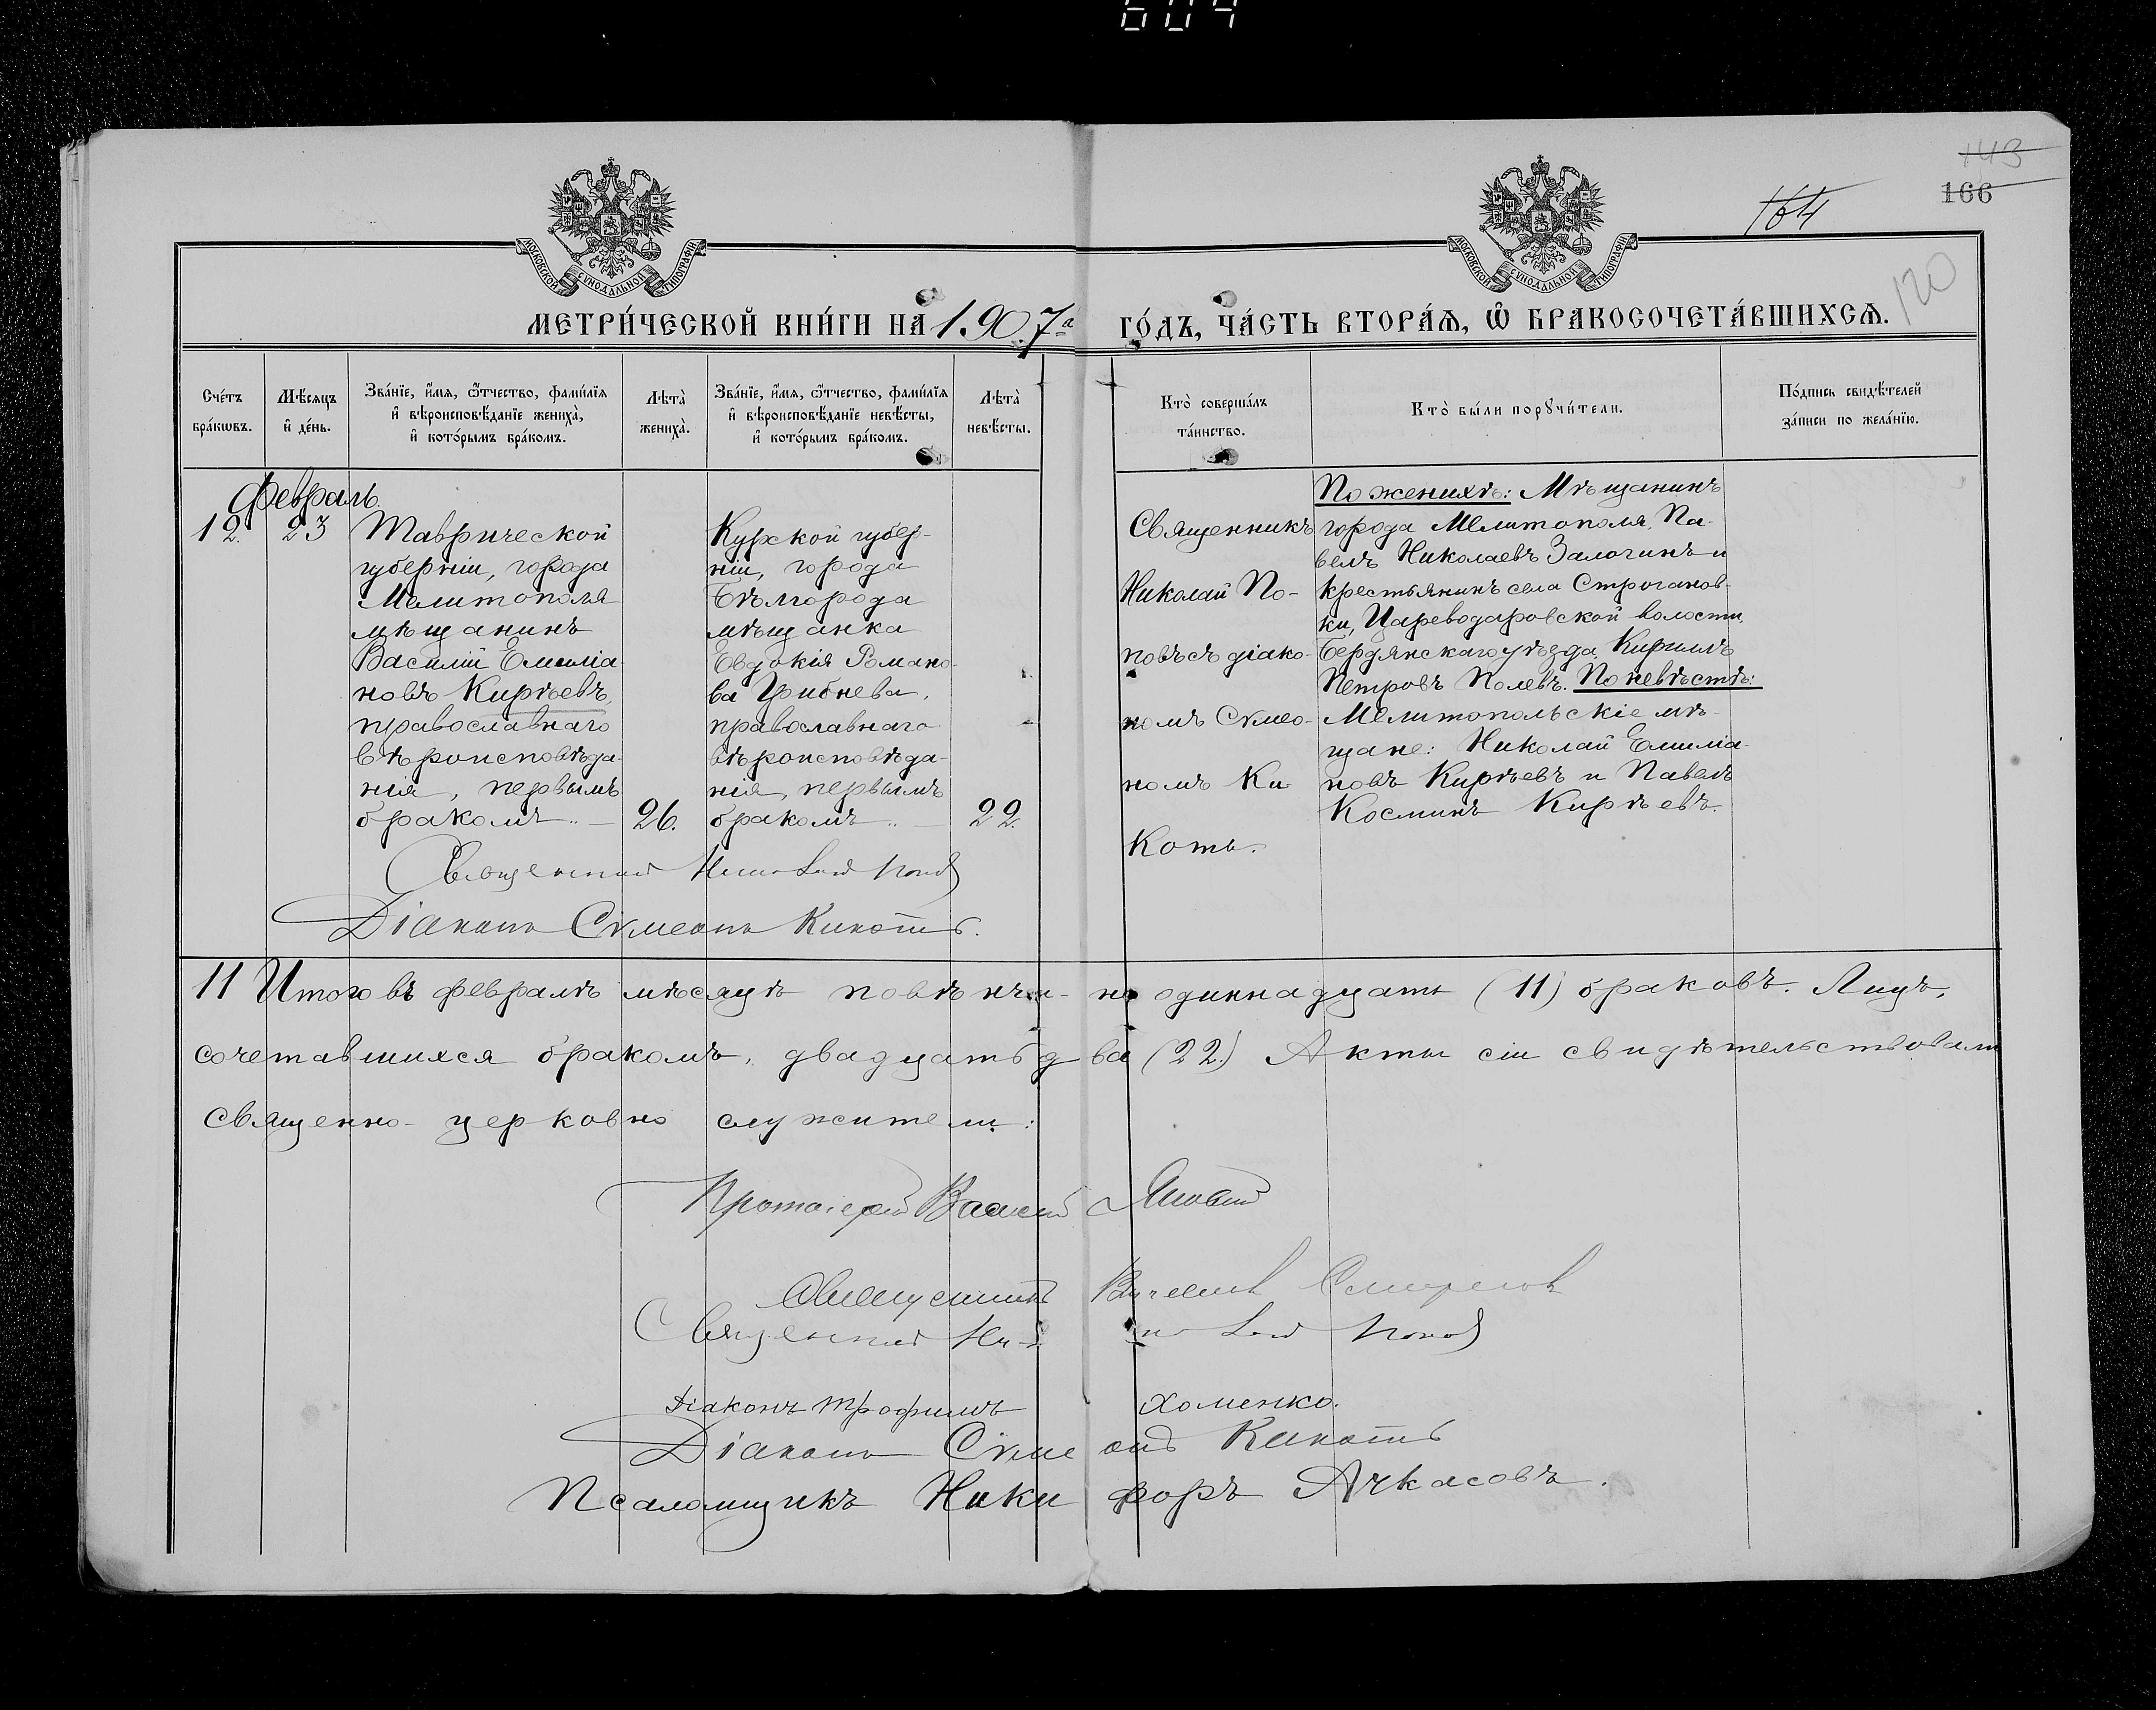 604
143
166
164
120
МОСКОВСКОЙ СѴНОДАЛЬНОЙ ТИПОГРАФІИ.
МОСКОВСКОЙ СѴНОДАЛЬНОЙ ТИПОГРАФІИ.
МЕТРИ́ЧЕСКОЙ КНИ́ГИ НА 1907й ГО́ДЪ, ЧА́СТЬ ВТОРА́Ѧ, Ѽ БРАКОСОЧЕТА́ВШИХСѦ.
Сче́тъ
бра́кѡвъ.
Мѣ́сѧцъ
и҆ де́нь.
Зва́нїе, и҆́мѧ, ѻ҆́тчество, фамѝлїѧ
и҆ вѣроисповѣ́данїе женихà,
и҆ кото́рымъ бра́комъ.
Лѣтà
женихà.
Зва́нїе, и҆́мѧ, ѻ҆́тчество, фамѝлїѧ
и҆ вѣроисповѣ́данїе невѣ́сты,
и҆ кото́рымъ бра́комъ.
Лѣтà
невѣ́сты.
Ктò соверша́лъ
та́инство.
Ктò бы́ли порꙋчи́тели.
По́дпись свидѣ́телей
за́писи по жела́нїю.
Февраль
12. 23
Таврической
губерніи, города
Мелитополя
мѣщанинъ
Василій Емеліа-
новъ Кирѣевъ,
православнаго
вѣроисповѣда-
нія, первымъ
бракомъ..— 26.
Курской губер-
ніи, города
Бѣлгорода
мѣщанка
Евдокія Романо-
ва Грибнева,
православнаго
вѣроисповѣда-
нія, первымъ
бракомъ..— 22.
Священникъ
Николай По-
повъ съ діако-
номъ Сѵмео-
номъ Ки
Коть.
По женихѣ: Мѣщанинъ
города Мелитополя, Па-
велъ Николаевъ Залогинъ и
крестьянинъ села Строганов-
ки, Цареводаровской волости,
Бердянскаго уѣзда Кириллъ
Петровъ Полевъ. По невѣстѣ:
Мелитопольскіе мѣ-
щане: Николай Емеліа-
новъ Кирѣевъ и Павелъ
Косминъ Кирѣевъ.
Священникъ Николай Поповъ
Діаконъ Сѵмеонъ Кикоть.
11 Итого въ февралѣ мѣсяцѣ повѣнча-но одиннадцать (11) браковъ. Лицъ,
сочетавшихся бракомъ, двадцать два (22.) Акты сіи свидѣтельствовали
священно-церковно служители:
Протоіерей Василій
Священникъ
Священникъ Николай Поповъ
Діаконъ Трофимъ Хоменко.
Діаконъ Сѵмеонъ Кикоть
Псаломщикъ Никифоръ Ачкасовъ.